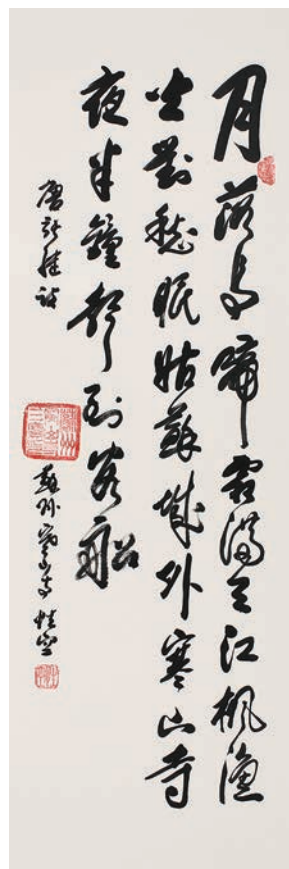 月落烏啼霜滿天江楓漁
火對愁眠姑蘇城外寒山寺
夜半鐘聲到客船
唐張繼詩
蘇州寒山寺 性空